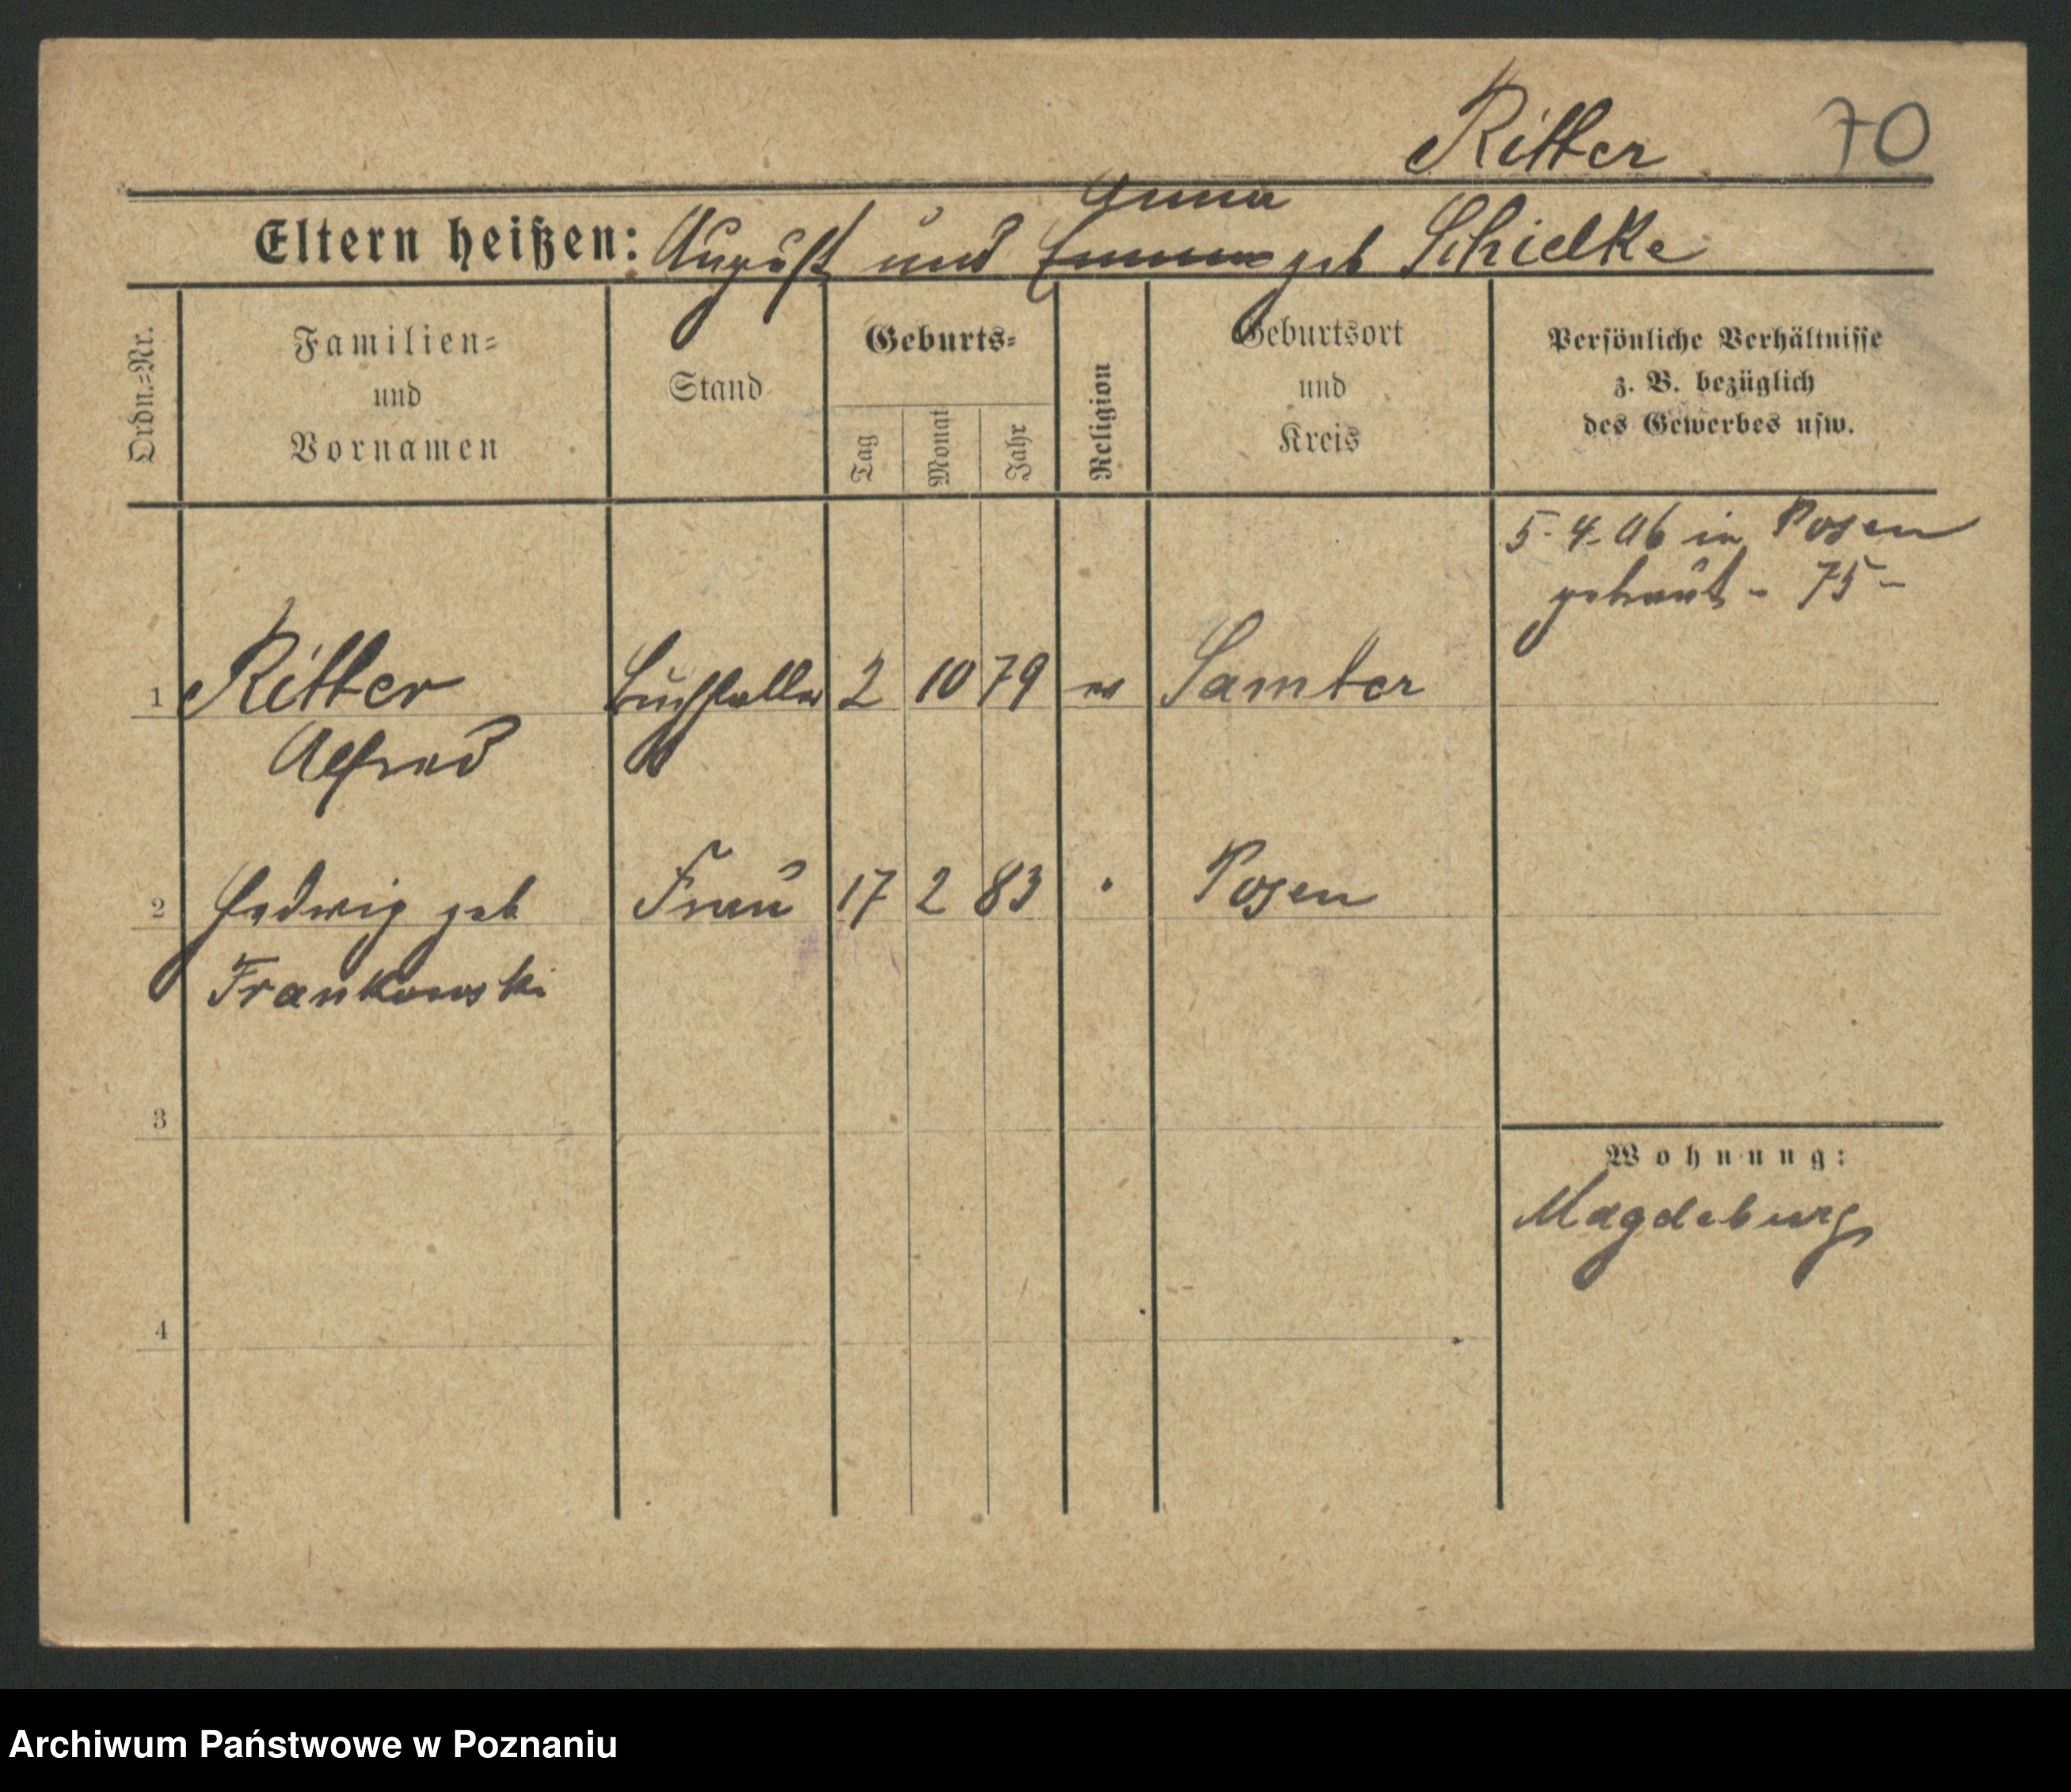 Ritter 70
Anna
Eltern heißen: August und Emma geb Schielke
Ordn.=Nr.
Familien=
und
Vornamen
Stand
Geburts=
Tag
Monat
Jahr
Religion
Geburtsort
und
Kreis
Persönliche Verhältnisse
z. B. bezüglich
des Gewerbes usw.
5-4-06 in Posen
getraut - 75 -
1 Ritter Buchhalter 2 10 79 ev Samter
Alfred
2 Hedwig geb Frau 17 2 83 " Posen
Frankowski
3
Wohnung:
Magdeburg
4
Archiwum Państwowe w Poznaniu